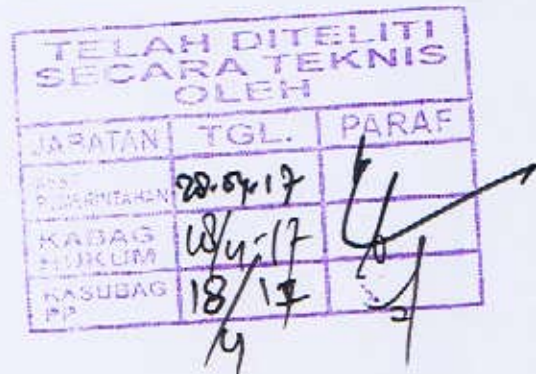 TELAH DITELITI
SECARA TEKNIS
OLEH
JABATAN TGL. PARAF
PEMERINTAHAN 28-04-17
KABAG
HUKUM 18/4-17
KASUBAG
PP 18/4 17